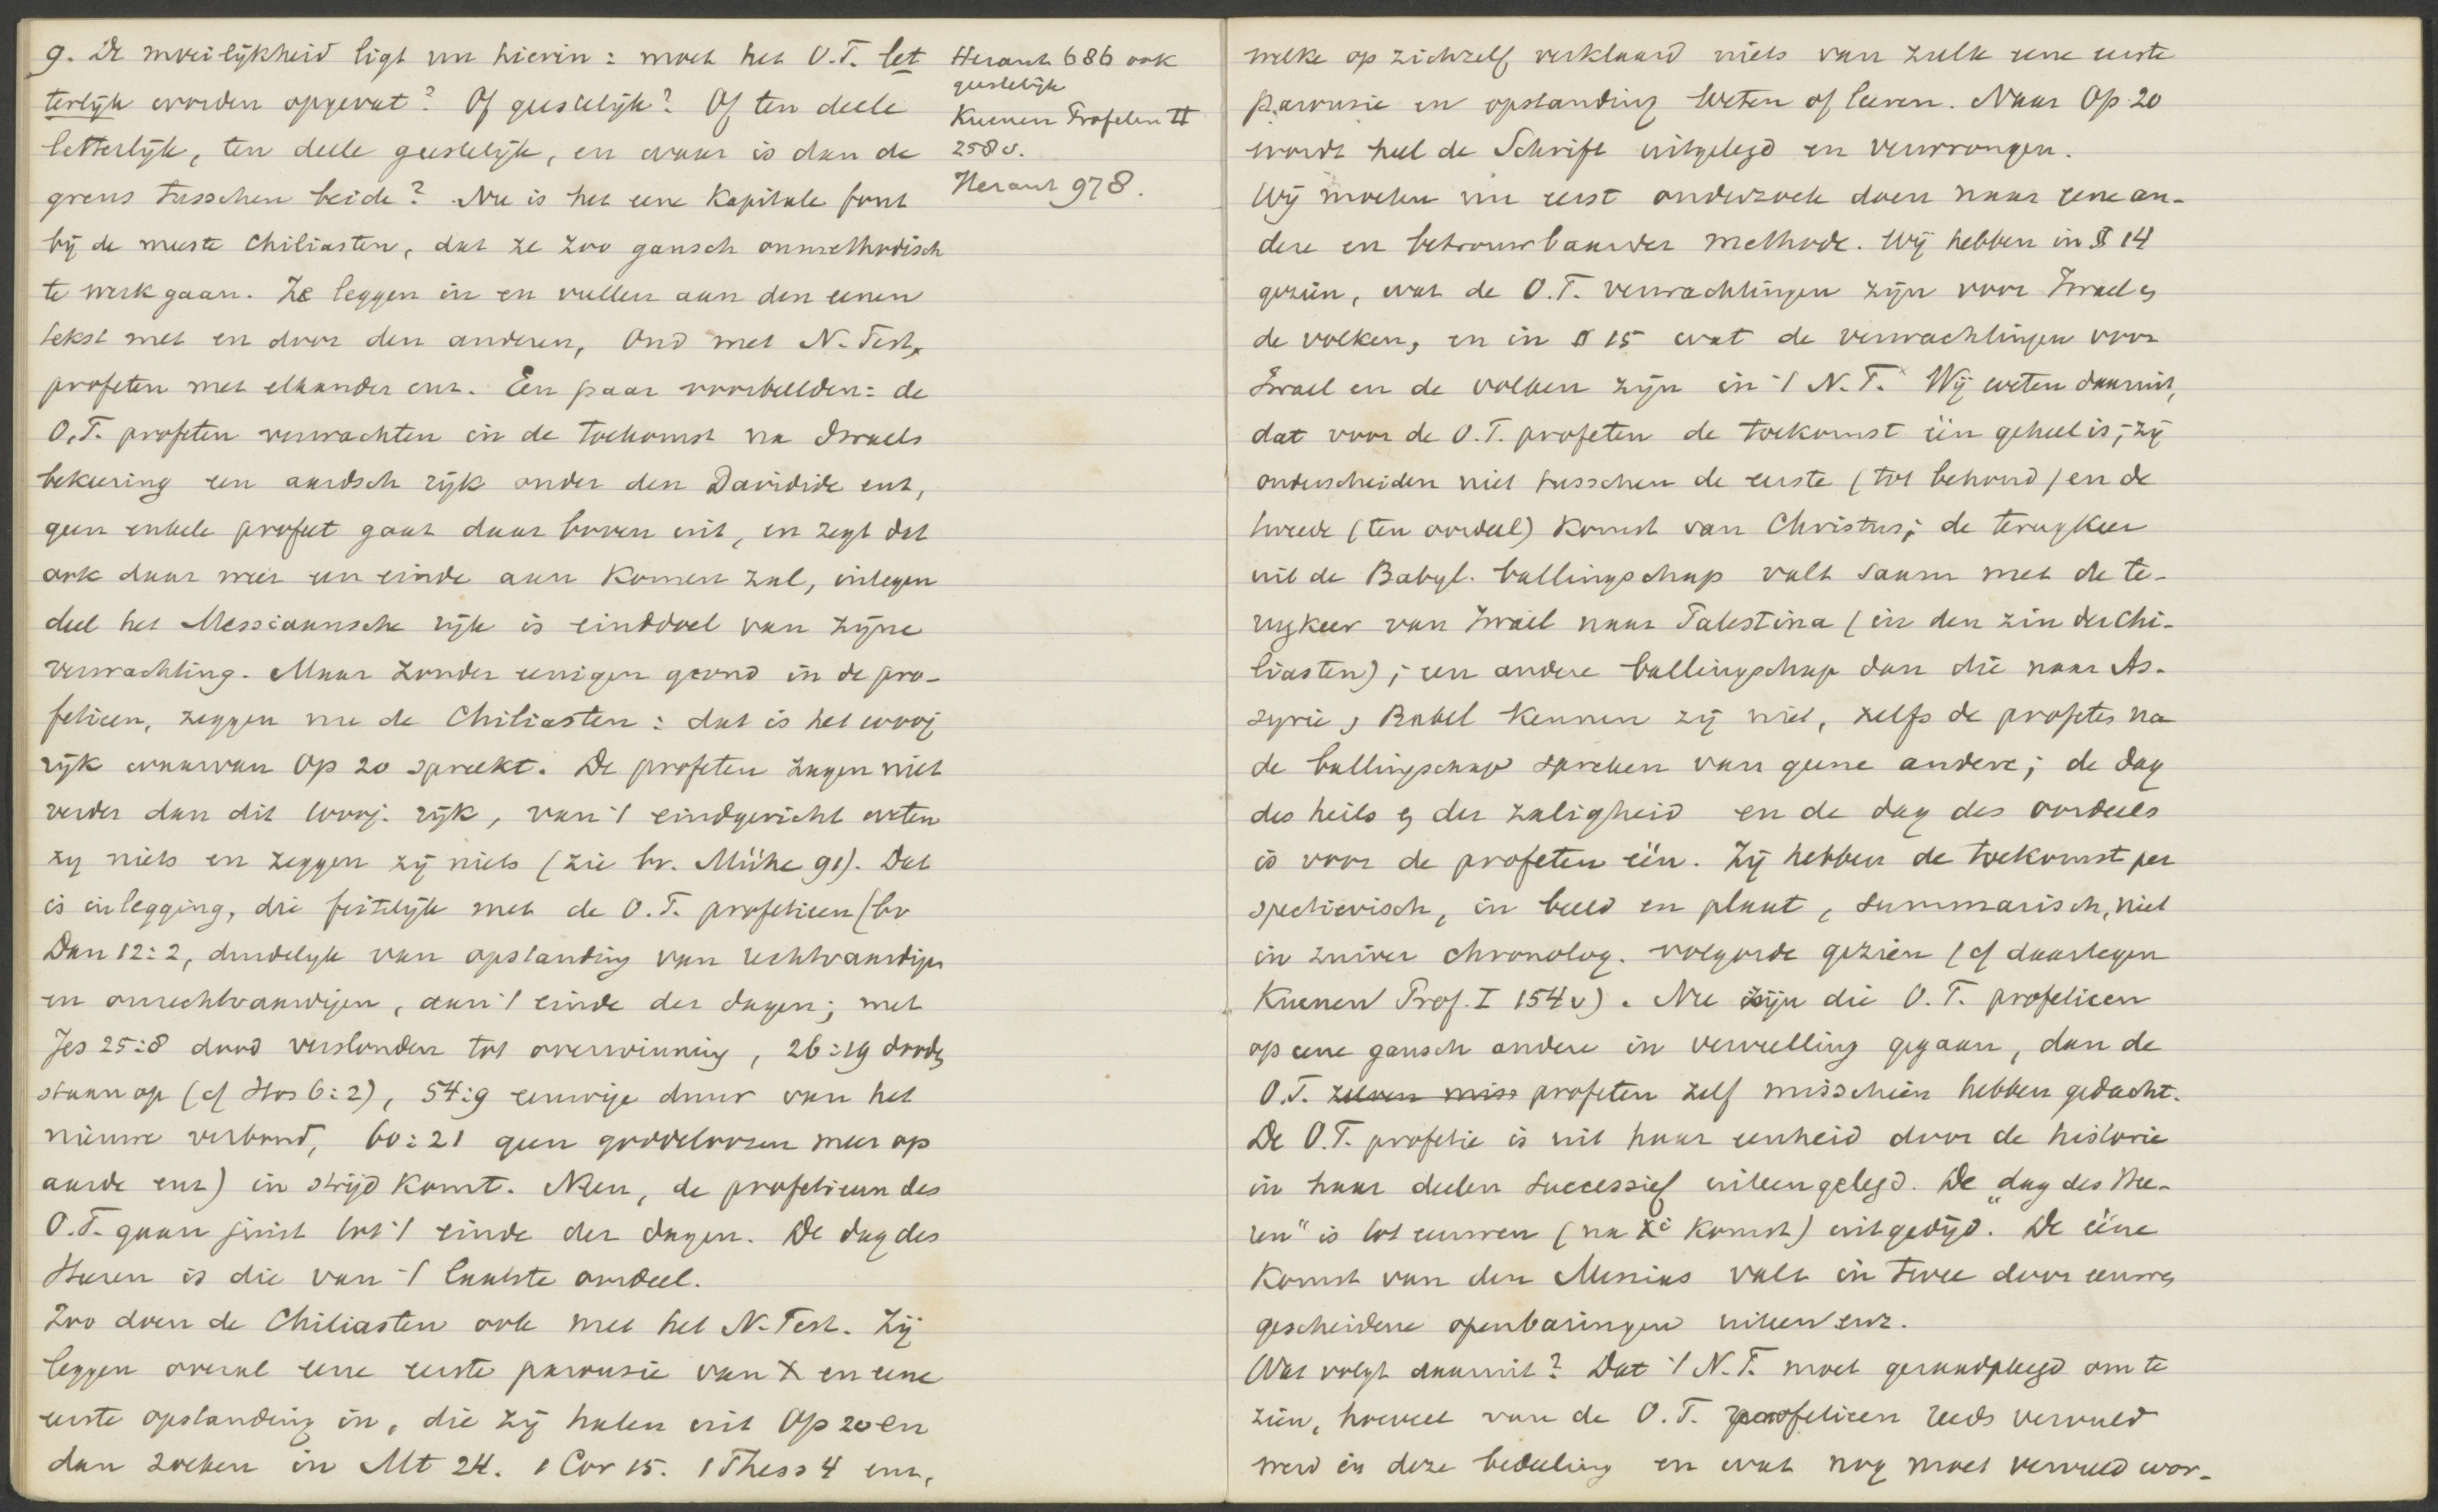 g. De moeilijkheid ligt nu hierin: moet het O.T. let
terlijk worden opgevat? Of geestelijk? Of ten deele
letterlijk, ten deele geestelijk, en waar is dan de
grens tusschen beide? Nu is het eene kapitale fout
bij de meeste Chiliasten, dat ze zoo gansch onmethodisch
te werk gaan. Ze leggen in en vullen aan den eenen
tekst met en door den anderen, Oud met N. Test,
profeten met elkander enz. Een paar voorbeelden: de
O.T. profeten verwachten in de toekomst na Israels
bekeering een aardsch rijk onder den Davidide enz,
geen enkele profeet gaat daar boven uit, en zegt dat
ook daar weer een einde aan komen zal, integen
deel het Messiaansche rijk is einddoel van zijne
verwachting. Maar zonder eenigen grond in de pro-
fetieen, zeggen nu de Chiliasten: dat is het 1000j
rijk waarvan Op 20 spreekt. De profeten zagen niet
verder dan dit 1000j. rijk, van 't eindgericht weten
zij niets en zeggen zij niets (zie bv. Mühe 91). Dat
is inlegging, die feitelijk met de O.T. profetieen (bv
Dan 12:2, duidelijk van opstanding van rechtvaardigen
en onrechtvaardigen, aan 't einde der dagen; met
Jes 25:8 dood verslonden tot overwinning, 26:19 dooden
staan op (cf Hos 6:2), 54:9 eeuwige duur van het
nieuwe verbond, 60:21 geen goddeloozen meer op
aarde enz) in strijd komt. Neen, de profetieen des
O.T. gaan juist tot 't einde der dagen. De dag des
Heeren is die van 't laatste oordeel.
Zoo doen de Chiliasten ook met het N. Test. Zij
leggen overal eene eerste parousie van X en eene
eerste opstanding in, die zij halen uit Op 20 en
dan zoeken in Mt 24. 1 Cor 15. 1 Thess 4 enz,
Heraut 686 ook
geestelijk
Kuenen Profeten II
258 v.
Heraut 978.
welke op zichzelf verklaard niets van zulk eene eerste
parousie en opstanding weten of leeren. Naar Op. 20
wordt heel de Schrift uitgelegd en verwrongen.
Wij moeten nu eerst onderzoek doen naar eene an-
dere en betrouwbaarder methode. Wij hebben in § 14
gezien, wat de O.T. verwachtingen zijn voor Israel en
de volken, en in § 15 wat de verwachtingen voor
Israel en de volken zijn in 't N.T. Wij weten daaruit,
dat voor de O.T. profeten de toekomst één geheel is; zij
onderscheiden niet tusschen de eerste (tot behoud) en de
tweede (ten oordeel) komst van Christus; de terugkeer
uit de Babyl. ballingschap valt saam met de te-
rugkeer van Israël naar Palestina (in den zin der Chi-
liasten); een andere ballingschap dan die naar As-
syrie, Babel kennen zij niet, zelfs de profeten na
de ballingschap spreken van geene andere; de dag
des heils en der zaligheid en de dag des oordeels
is voor de profeten één. Zij hebben de toekomst per
spectievisch, in beeld en plaat, summarisch, niet
in zuiver chronolog. volgorde gezien (cf daartegen
Kuenen Prof. I 154 v). Nu zijn die O.T. profetieen
op eene gansch andere in vervulling gegaan, dan de
O.T. profeten zelf misschien hebben gedacht.
De O.T. profetie is uit haar eenheid door de historie
in haar deelen successief uiteengelegd. De „dag des Hee-
ren" is tot eeuwen (na Xi komst) uitgedijd. De ééne
komst van den Messias valt in twee door eeuwen
gescheidene openbaringen uiteen enz.
Wat volgt daaruit? Dat 't N.T. moet geraadpleegd om te
zien, hoeveel van de O.T. profetieen reeds vervuld
werd in deze bedeeling en wat nog moet vervuld wor-